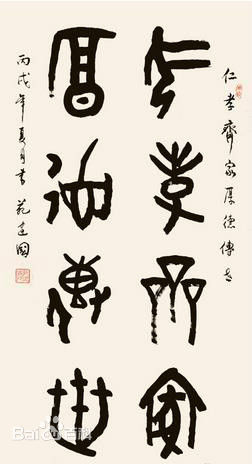 仁孝齊家厚德傳世
仁孝齊家
厚德傳世
丙戌年夏月書 建國
Baidu百科